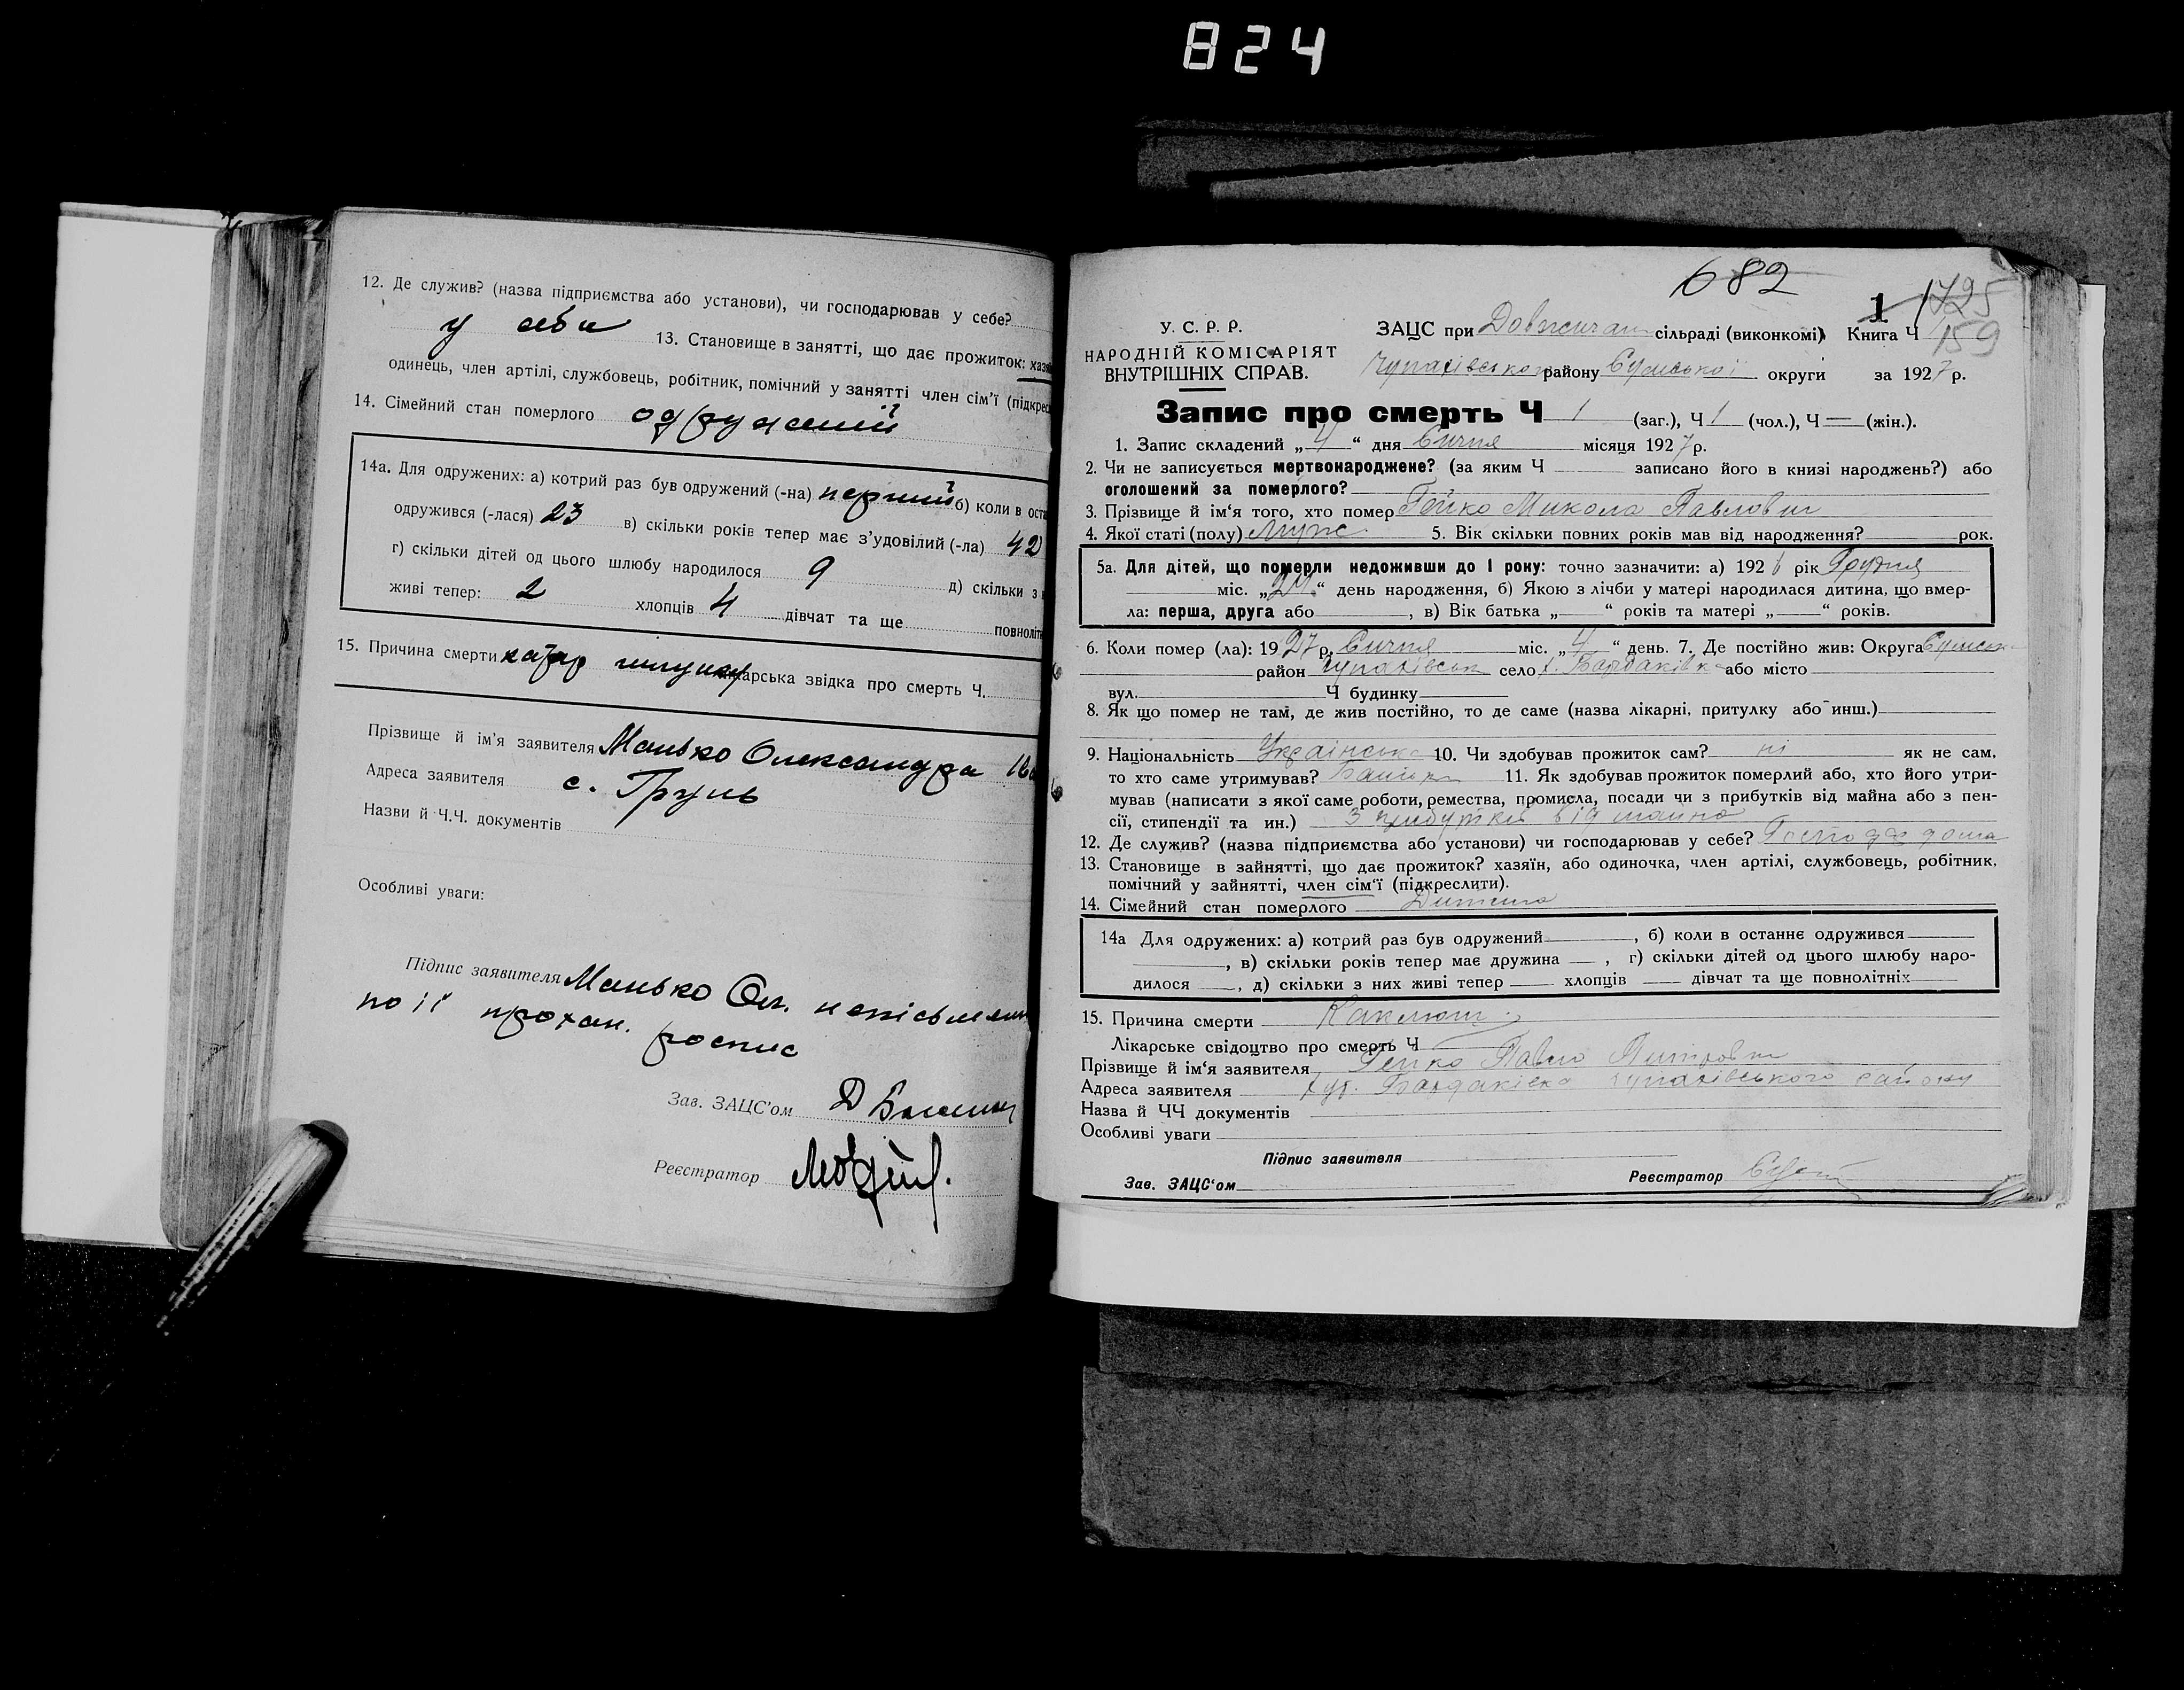 824
12. Де служив? (назва підприємства або установи), чи господарював у себе?
у себе 13. Становище в занятті, що дає прожиток: хазя
одинець, член артілі, службовець, робітник, помічний у занятті член сім'ї (підкрес
14. Сімейний стан померлого одружений
14а. Для одружених: а) котрий раз був одружений (-на) перший б) коли в оста
одружився (-лася) 23 в) скільки років тепер має з'удовілий (-ла) 42
г) скільки дітей од цього шлюбу народилося 9 д) скільки з н
живі тепер: 2 хлопців 4 дівчат та ще повноліт
15. Причина смерти катар шлунку лікарська звідка про смерть Ч.
Прізвище й ім'я заявителя Манько Олександра Ів
Адреса заявителя с. Грунь
Назви й Ч.Ч. документів
Особливі уваги:
Підпис заявителя Манько Ол. неписьмен
по її прохан. роспис
Зав. ЗАЦС'ом Д
Реєстратор
682
1 1725
159
У. С. Р. Р.
НАРОДНІЙ КОМІСАРІЯТ
ВНУТРІШНІХ СПРАВ.
ЗАЦС при Довжичан сільраді (виконкомі) Книга Ч
Чупахівського району Сумської округи за 1927 р.
Запис про смерть Ч 1 (заг.), Ч 1 (чол.), Ч — (жін.).
1. Запис складений „4“ дня Січня місяця 1927 р.
2. Чи не записується мертвонароджене? (за яким Ч записано його в книзі народжень?) або
оголошений за померлого?
3. Прізвище й ім‘я того, хто помер Гейко Микола Павлович
4. Якої статі (полу) Муж. 5. Вік скільки повних років мав від народження? рок.
5а. Для дітей, що померли недоживши до 1 року: точно зазначити: а) 1926 рік Грудня
міс. „24“ день народження, б) Якою з лічби у матері народилася дитина, що вмер-
ла: перша, друга або , в) Вік батька „ “ років та матері „ “ років.
6. Коли помер (ла): 1927 р. Січня міс. „4“ день. 7. Де постійно жив: Округа Сумськ
район Чупахівськ село х. Бардаківка або місто
вул. Ч будинку
8. Як що помер не там, де жив постійно, то де саме (назва лікарні, притулку або инш.)
9. Національність Українська 10. Чи здобував прожиток сам? ні як не сам,
то хто саме утримував? Батьки 11. Як здобував прожиток померлий або, хто його утри-
мував (написати з якої саме роботи, ремества, промисла, посади чи з прибутків від майна або з пен-
сії, стипендії та ин.) З прибутків від майна
12. Де служив? (назва підприємства або установи) чи господарював у себе?
13. Становище в зайнятті, що дає прожиток? хазяїн, або одиночка, член артілі, службовець, робітник,
помічний у зайнятті, член сім‘ї (підкреслити).
14. Сімейний стан померлого Дитина
14а Для одружених: а) котрий раз був одружений , б) коли в останнє одружився
, в) скільки років тепер має дружина , г) скільки дітей од цього шлюбу наро-
дилося , д) скільки з них живі тепер хлопців дівчат та ще повнолітніх
15. Причина смерти Каклюш
Лікарське свідоцтво про смерть Ч
Прізвище й ім‘я заявителя Гейко Павло
Адреса заявителя хут. Бардаківка Чупахівського району
Назва й ЧЧ документів
Особливі уваги
Підпис заявителя
Зав. ЗАЦС‘ом Реєстратор